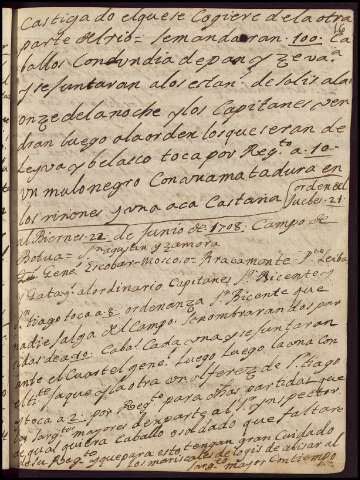 castigado el que se Cogiere de la otra
parte del rio = Se mandaran 100 Ca
ballos Con Un dia de pan y Zevada
y se juntaran a los estan.
onze de la noche y los Capitanes ven
dran luego a la orden los que seran de
Leyva y belasco toca por Regto a 10
Un mulo negro Con una matadura en
los riñones y una aca Castaña
orden del
Juebes 21
el Biernes 22 de Junio de 1708 Campo de
Botua = Sn agustin y zamora
Gene. Escobar Moscoso = Bracamonte
al ordinario Capitanes Sn Bicente y
Stiago toca a 8 ordenanza Sn Bicente que
nadie salga del Campo. Se nombraran dos par
tidas de a 40 Cabos Cada una y se juntaran
ante el Cuartel gene. luego luego la una Con
y la otra Con oferez de Stiago
y toca a 2 por Regto para otras partidas que
los Sargtos mayores den parte al Sr ynspector
de qual quiera Caballo o soldado que faltare
de su Regto y que para esto tengan gran Cuidado
los mariscales de logis de abisar al
Sargto mayor Con tiempo